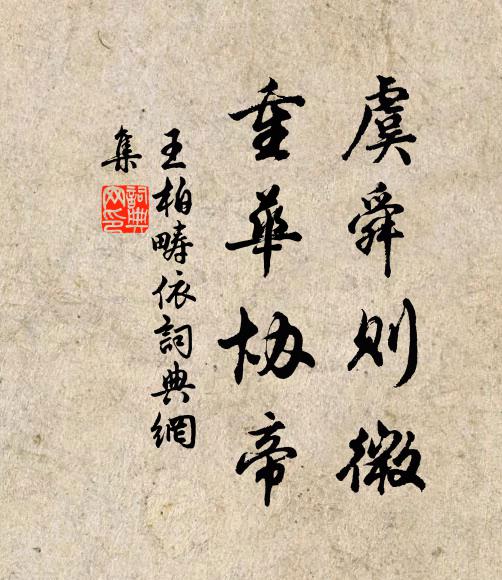 虞舜則微
重華協帝
王柏疇依詞典網
集
詞典網印